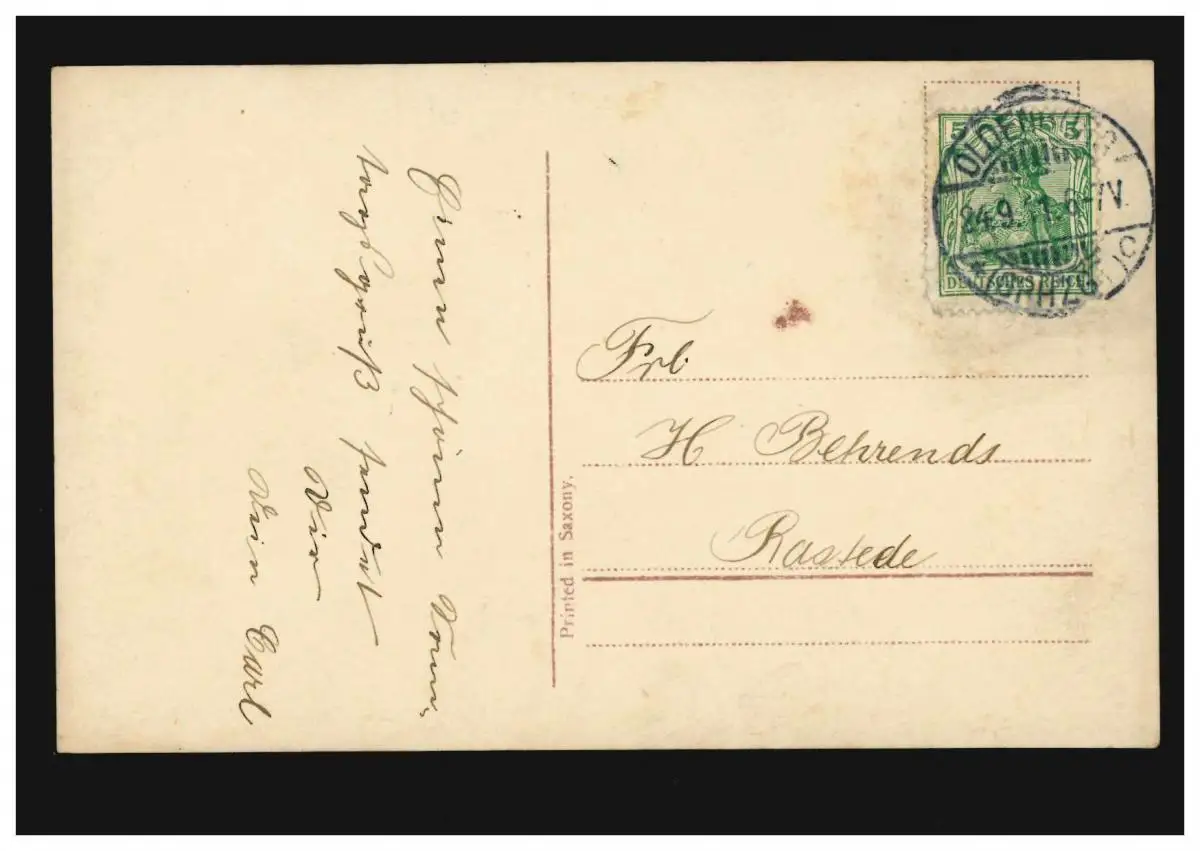 Einen schönen Sonn-
tagsgruß sendet
Dir
Dein Carl
Printed in Saxony.
5 5
DEUTSCHES REICH
OLDENBURG
GRHZGT.
6-7V.
C
Frl.
H Behrends
Rastede